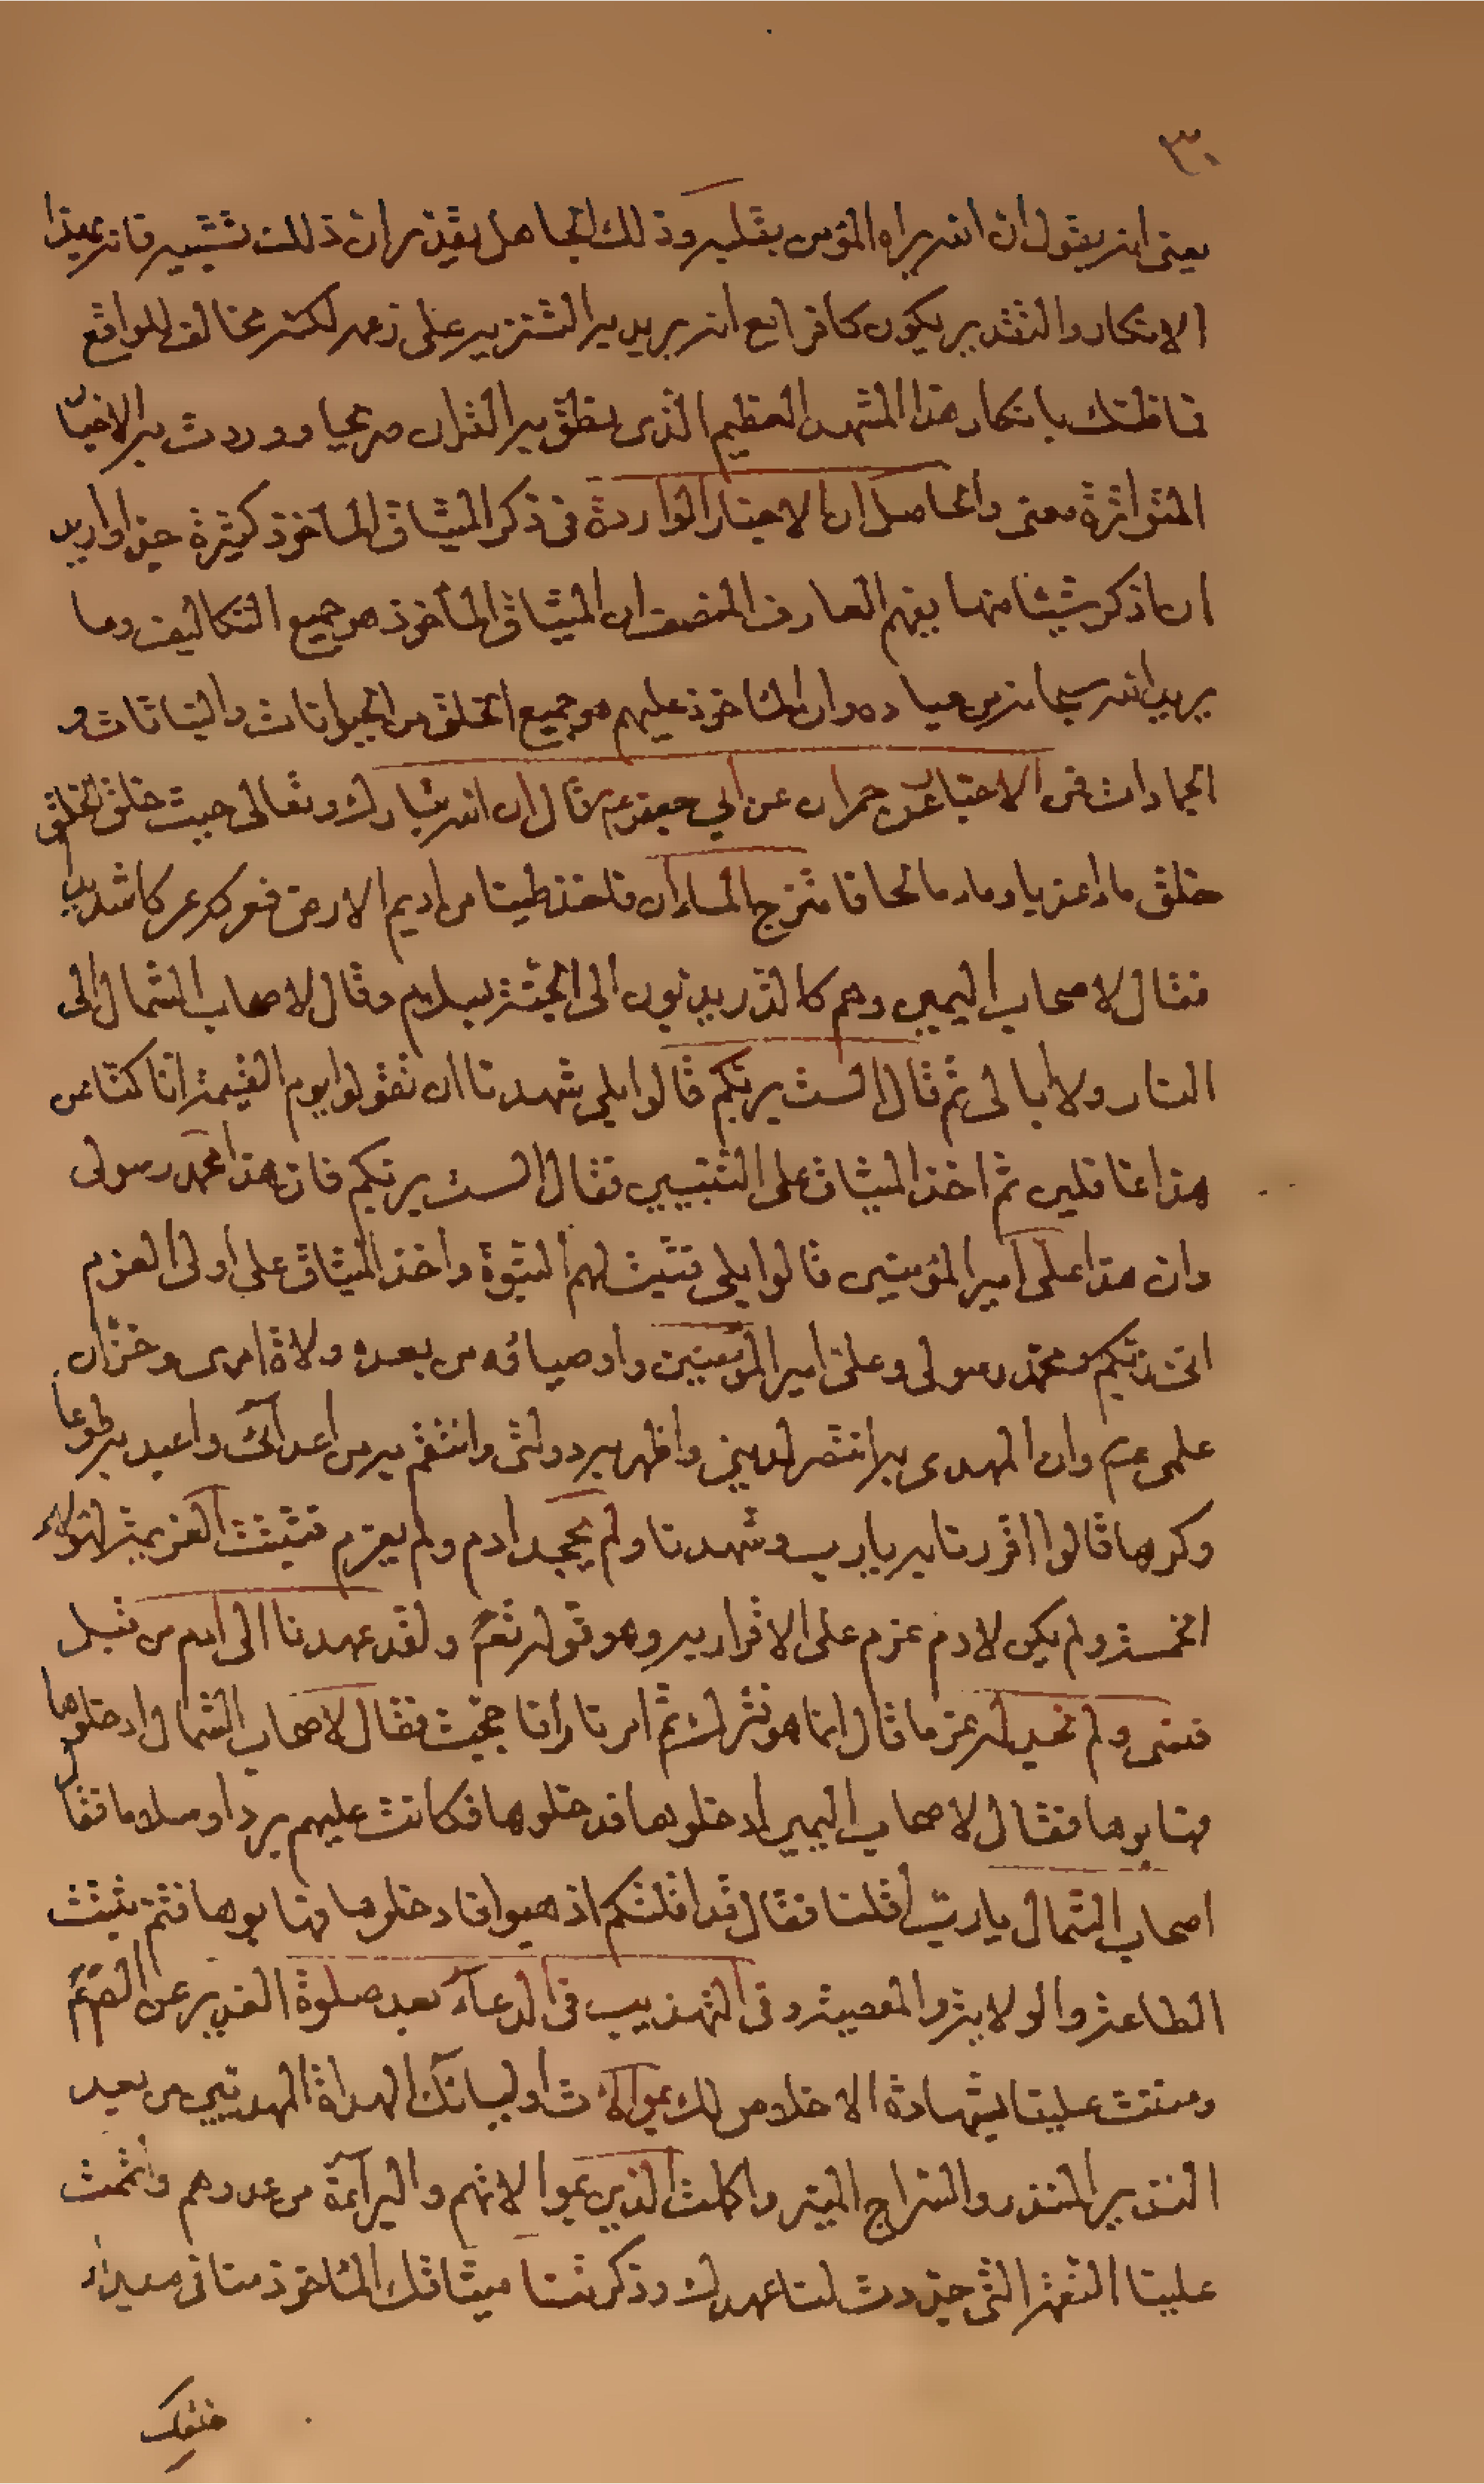 ٣٠
يعنى انه يقول ان الله يراه المؤمن بقلبه وذلك الجاهل يقدر ان ذلك تشبيه فانه بهذا
الانكار والتقدير يكون كافرا مع انه يريد به التنزيه على زعمه لكنه مخالف للواقع
فما ظنك بانكار هذا المشهد العظيم الذى نطق به القران صريحا ووردت به الاخبار
المتواترة معنى والحاصل ان الاخبار الواردة فى ذكر الميثاق المأخوذ كثيرة جدا واريد
ان اذكر شيئا منها يفهم العارف المنصف ان الميثاق المأخوذ هو جميع التكاليف وما
يريد الله سبحانه من عباده وان المأخوذ عليهم هو جميع الخلق من الحيوانات والنباتات و
الجمادات فى الاخبار عن حمران عن ابي جعفر عم قال ان الله تبارك وتعالى حيث خلق الخلق
خلق ماء عذبا وماء مالحا فامتزج الماءان فاخذ طينا من اديم الارض فعركه عركا شديدا
فقال لاصحاب اليمين وهم كالذر يدبون الى الجنة بسلام وقال لاصحاب الشمال الى
النار ولا ابالى ثم قال الست بربكم قالوا بلى شهدنا ان تقولوا يوم القيمة انا كنا عن
هذا غافلين ثم اخذ الميثاق على النبيين فقال الست بربكم فان هذا محمد رسولى
وان هذا على امير المؤمنين قالوا بلى فثبت لهم النبوة واخذ الميثاق على اولى العزم
اننى ربكم ومحمد رسولى وعلى امير المؤمنين واوصيائه من بعده ولاة امرى وخزان
علمى عم وان المهدى به انتصر لدينى واظهر به دولتى وانتقم به من اعدائى واعبد به طوعا
وكرها قالوا اقررنا به يا رب وشهدنا ولم يجحد ادم ولم يعزم فثبتت العزيمة لهؤلاء
الخمسة ولم يكن لادم عزم على الاقرار به وهو قوله تع ولقد عهدنا الى ادم من قبل
فنسى ولم نجد له عزما قال انما هو فترك ثم امر نارا فاججت فقال لاصحاب الشمال ادخلوها
فهابوها فقال لاصحاب اليمين ادخلوها فدخلوها فكانت عليهم بردا وسلاما فقال
اصحاب الشمال يا رب اقلنا فقال قد اقلتكم اذهبوا فادخلوها فهابوها فثم ثبتت
الطاعة والولاية والمعصية وفى التهذيب فى الدعاء بعد صلوة الغدير عن الصم
ومننت علينا بشهادة الاخلاص لك بموالاة اوليائك الهداة المهديين من بعد
النذير المنذر والسراج المنير واكملت الدين بموالاتهم والبرآءة من عدوهم واتممت
علينا النعمة التى جددت لنا عهدك وذكرتنا ميثاقك المأخوذ منا فى مبدء
خلقك